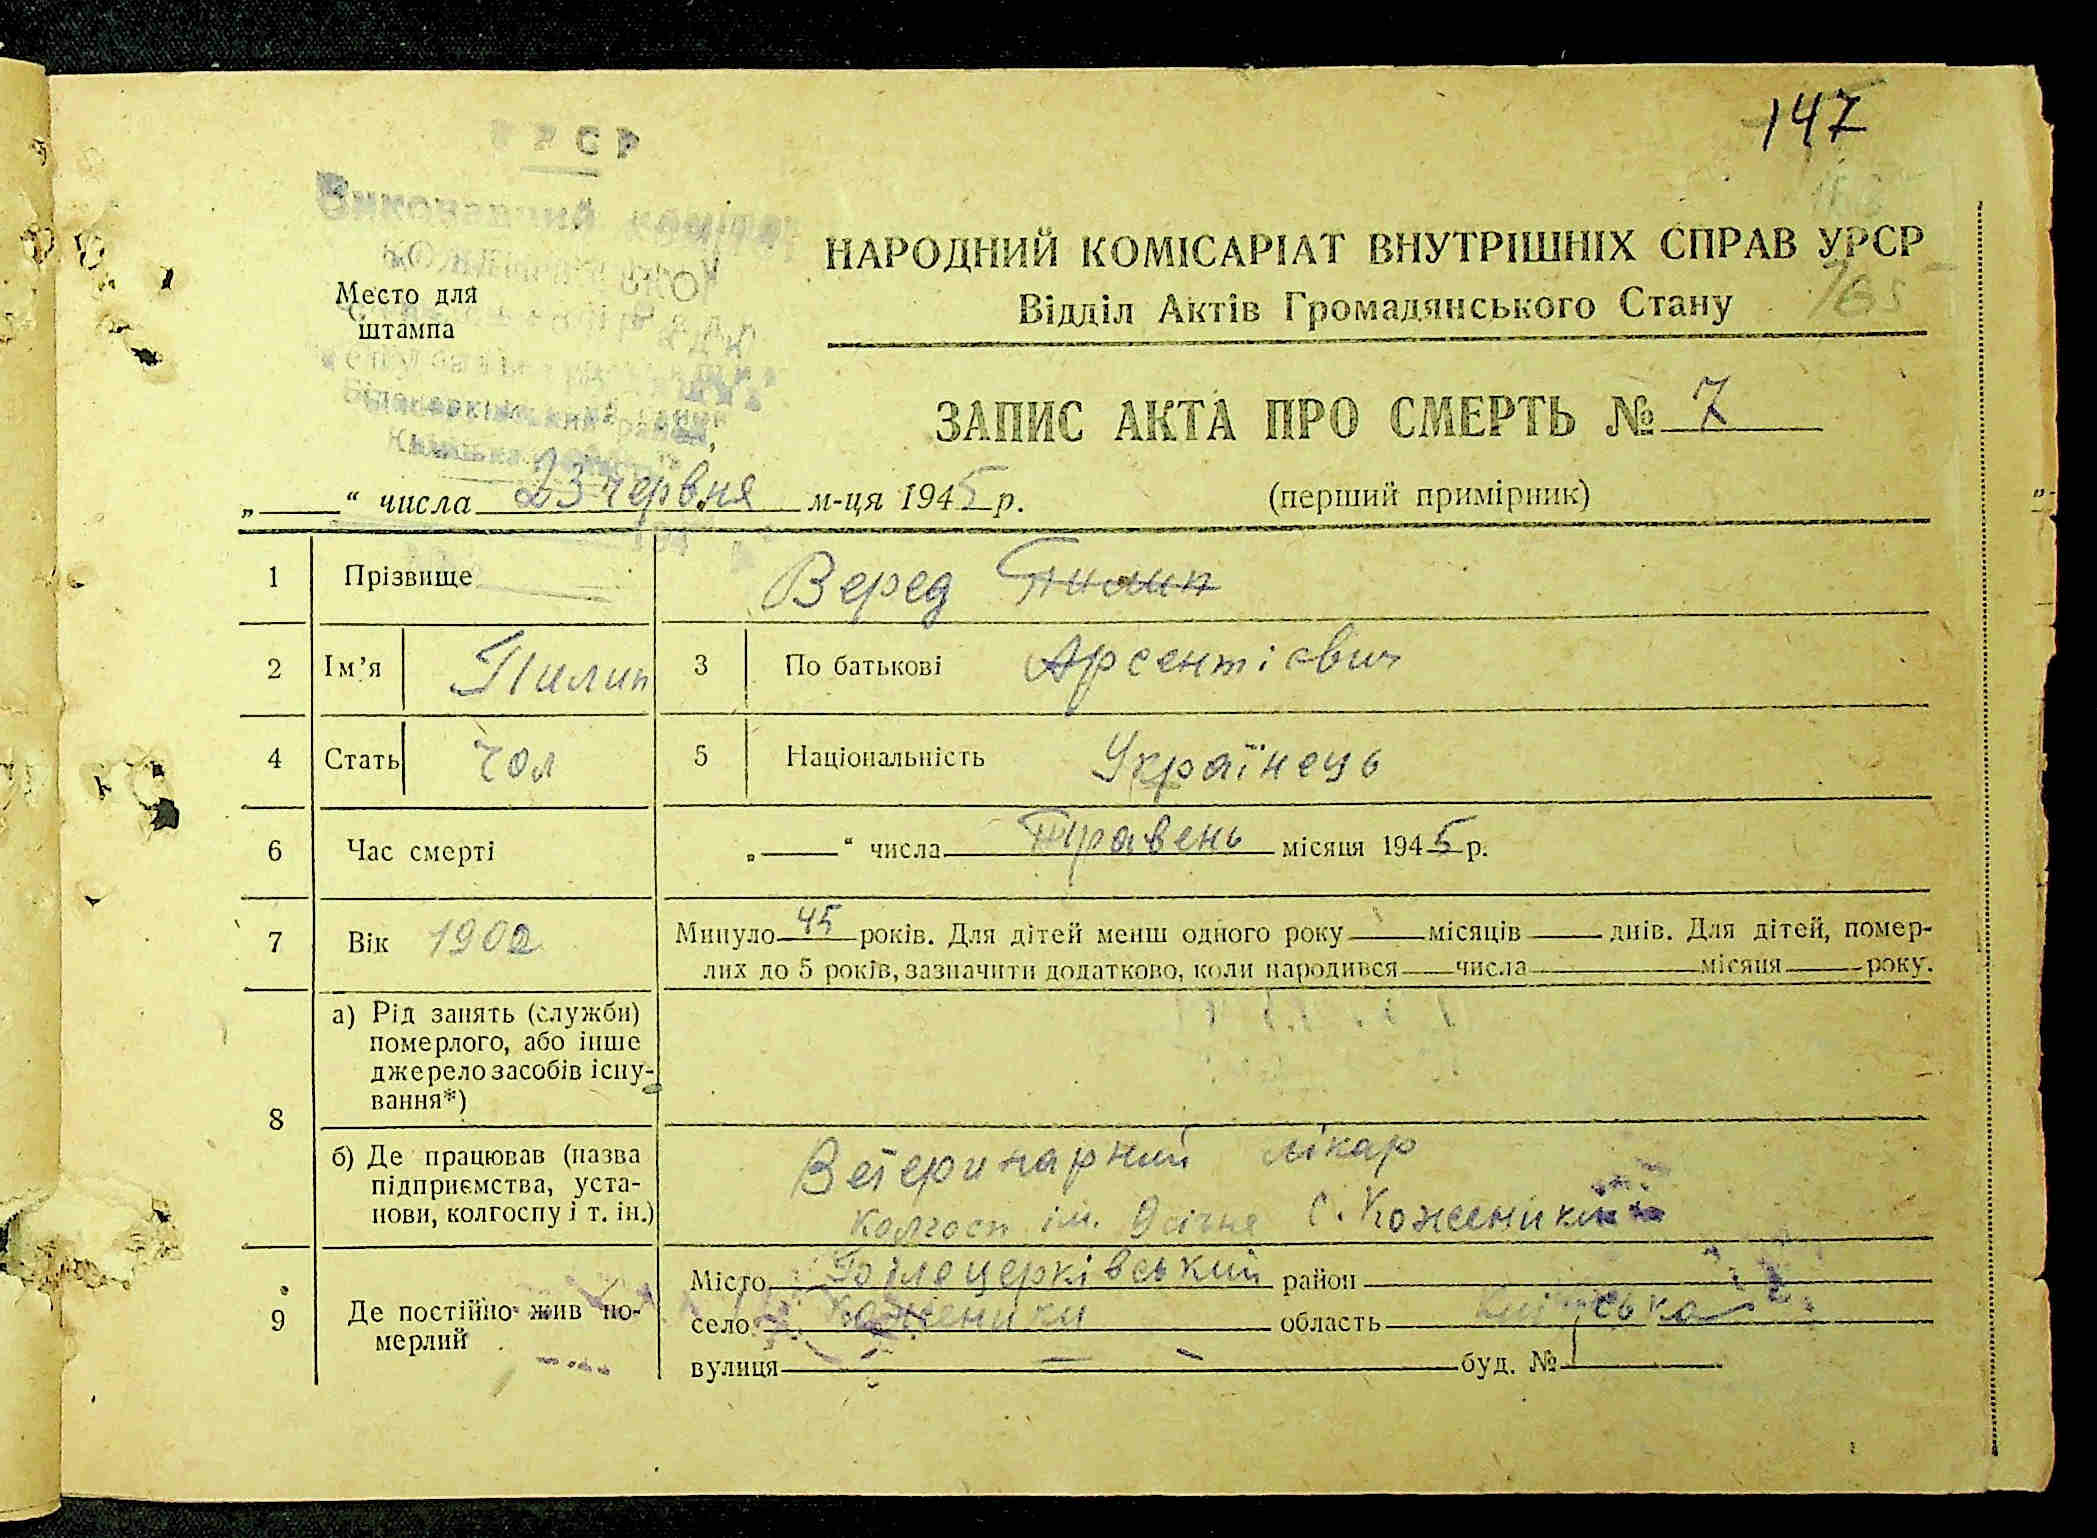 147
УРСР
Виконавчий комітет
165
НАРОДНИЙ КОМІСАРІАТ ВНУТРІШНІХ СПРАВ УРСР
Место для
штампа
Відділ Актів Громадянського Стану
ЗАПИС АКТА ПРО СМЕРТЬ № 7
„ “ числа 23 червня м-ця 1945 р. (перший примірник)
1 Прізвище Веред Пилип
2 Ім’я Пилип 3 По батькові Арсентієвич
4 Стать чол 5 Національність Українець
6 Час смерті „ “ числа Травень місяця 1945 р.
7 Вік 1900 Минуло 45 років. Для дітей менш одного року місяців днів. Для дітей, помер-
лих до 5 років, зазначити додатково, коли народився числа місяця року.
8 а) Рід занять (служби)
померлого, або інше
джерело засобів існу-
вання*)
б) Де працював (назва
підприємства, уста-
нови, колгоспу і т. ін.)
Ветеринарний лікар
Колгосп ім. с. Коженики
9 Де постійно жив по-
мерлий
Місто Білецерківський район
село Коженики область Київська
вулиця буд. №